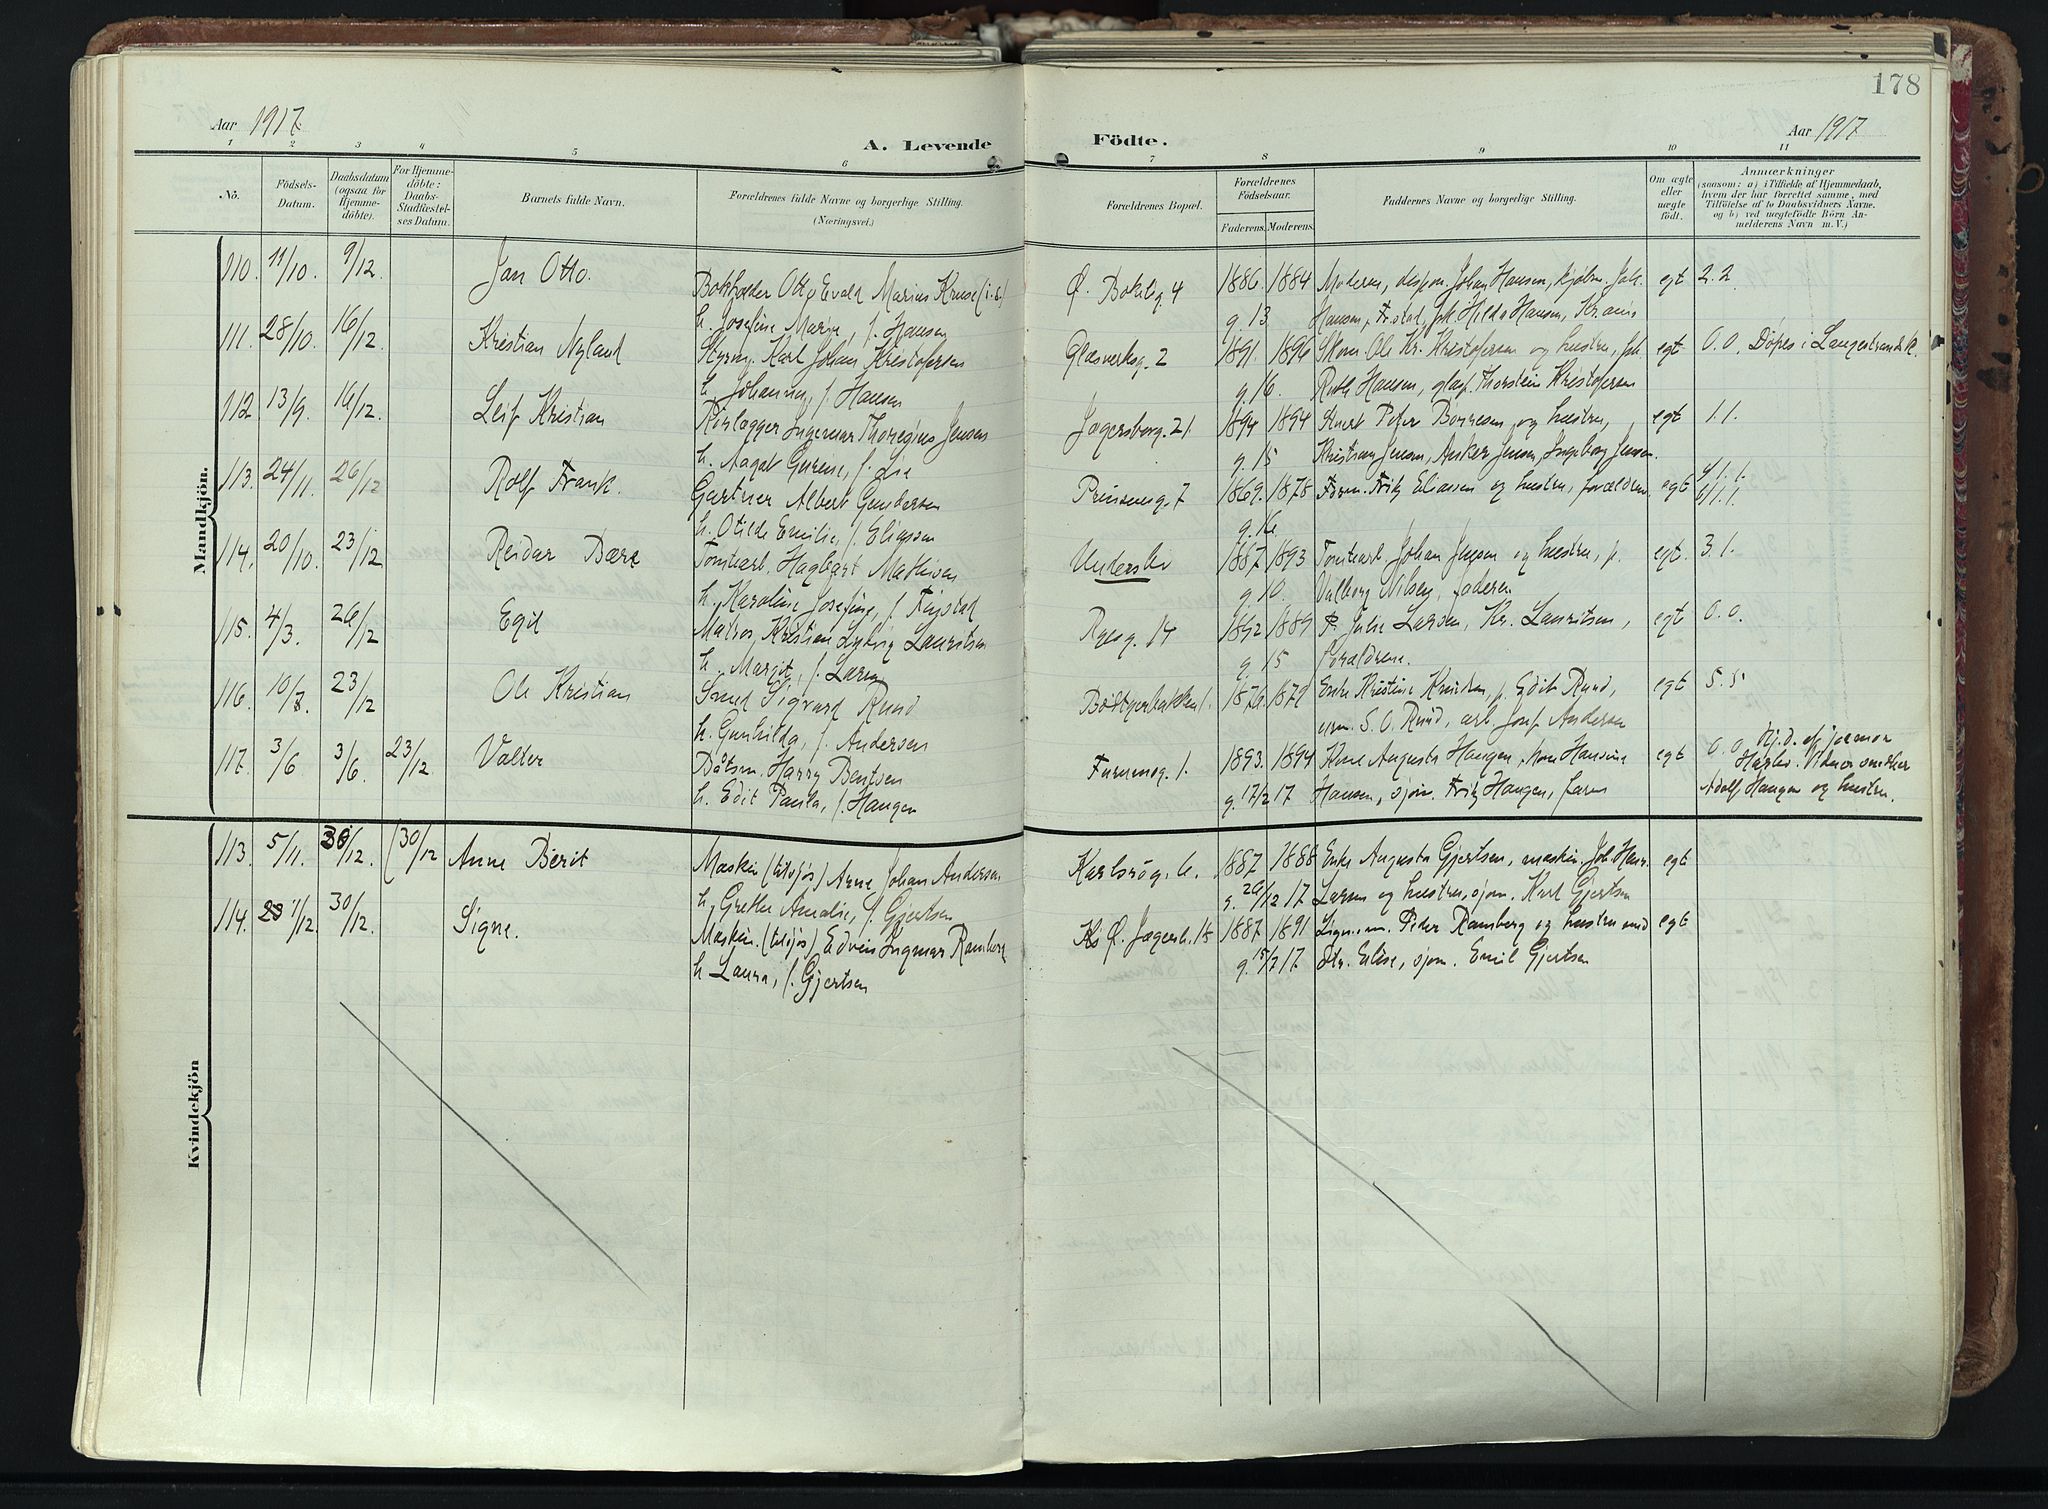 178
Aar 1917.
A. Levende
Födte.
Aar 1917
1 2 3 4 5 6 7 8 9 10 11
No.
Födsels-Datum.
Daabsdatum (ogsaa for Hjemme-döbte).
For Hjemme-döbte: Daabs-Stadfæstel-ses Datum.
Barnets fulde Navn.
Forældrenes fulde Navne og borgerlige Stilling.
(Næringsvei.)
Forældrenes Bopæl.
Forældrenes Födselsaar.
Faderens. Moderens.
Faddernes Navne og borgerlige Stilling.
Om ægte eller uægte födt.
Anmærkninger
(saasom: a) i Tilfælde af Hjemmedaab,
hvem der har forrettet samme, med
Tilföielse af to Daabsvidners Navne.
og b) ved uægtefödte Börn An-
melderens Navn m.V.)
Mandkjön.
110. 11/10. 9/12. Jan Otto. Bokholder Otto Evald Marius Kruse (i.b.) Ø. Bokelig. 4 1886. 1884 Moderen, dispon. Johan Hansen, kjøbm. Joh. egt 2.2.
h. Josefine Marie, f. Hansen g. 13 Hansen, Fr.stad, frk Hilda Hansen, Kr.ania
111. 28/10. 16/12. Kristian Nyland Styrm. Karl Johan Kristofersen Glasverksg. 2 1891. 1896 Skom. Ole Kr. Kristofersen og hustru, frk. egt 0.0. Døpes i Langestrands k.
h. Johanne, f. Hansen g. 16. Ruth Hansen, Thorstein Kristofersen
112 13/9. 16/12. Leif Kristian Rørlægger Ingemar Thoregius Jensen Jægersborg. 21 1894 1894 Peter Børresen og hustru, egt 1.1.
h. Aagot f. Lie g. 15 Kristian Jensen, Anker Jensen, Ingeborg Jensen.
113. 24/11. 26/12 Rolf Frank. Gartner Albert Gundersen Prinseng. 7 1869. 1878 Form. Fritz Eliassen og hustru, forældrene egt 1.1.
h. Otilde Emilie, f. Eliassen g. 16
114. 20/10. 23/12 Reidar Bære Tomtearb. Hagbart Mathisen Underslev 1887 1893 Tomtearb Johan Jensen og hustru, p. egt. 3.1.
h. Karoline Josefine, f. g. 10. Valborg Nilsen, faderen
115. 4/3. 26/12 Egil Matros Kristian Ludvig Lauritsen Ryesg. 14 1892 1889 P. Julie Larsen, Kr. Lauritsen, egt 0.0.
h. Margit, f. Larsen g. 15 forældrene.
116. 10/8. 23/12 Ole Kristian Smed Sigvard Ruud Bøltgerbakken 1. 1876. 1879 Enke Kristine Knudsen, p. Edit Ruud, egt 5.5
h. Gunhilda, f. Andersen urm. S. O. Ruud, arb. Josef Andersen
117. 3/6 3/6. 23/12 Valter Båtsm. Harry Bentsen Furumog. 1. 1893. 1894 Kone Augusta Haugen, kone Hansine egt 0.0 Hj.d. af jormor
h. Edit Paula, f. Haugen g. 17/2 17 Hansen, sjøm. Fritz Haugen, faren
Vidner snedker
Adolf Haugen og hustru.
Kvindekjön
113. 5/11. 30/12. (30/12 Anne Berit Maskin. (tilsjøs) Arne Johan Andersen Karlsrog. 6. 1887 1888 Enke Augusta Gjertsen, maskin. Joh. Hans egt
h. Grethe Amalie, f. Gjertsen g. 29/12 17 Larsen og hustru, sjøm. Karl Gjertsen
114. 1/12. 30/12. Signe. Maskin. (tilsjøs) Edvin Ingmar Ramberg Ø. Jægerb. 18 1887 1891 Peder Ramberg og hustru med egt
h Laura, f. Gjertsen g. 15/7 17 dtr. Elise, sjøm. Emil Gjertsen